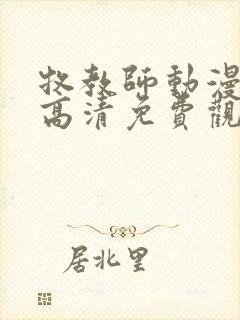 牧教師動漫
高清免費觀
居北里